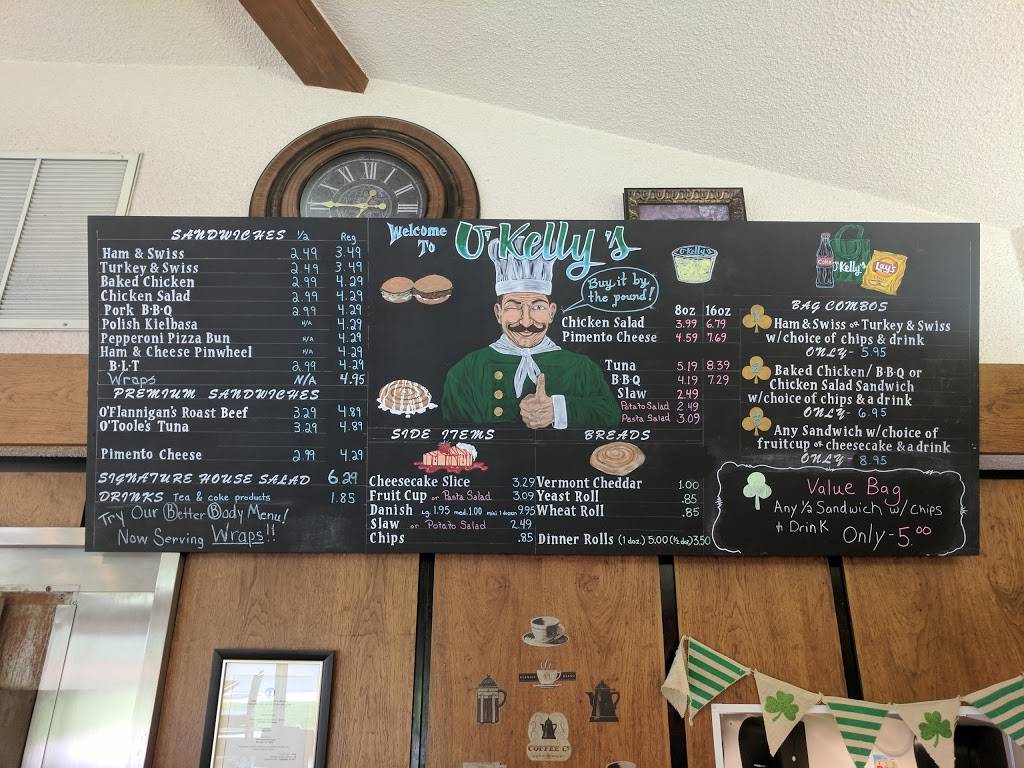 SANDWICHES 1/2 Reg.
Ham & Swiss 2.49 3.49
Turkey & Swiss 2.49 3.49
Baked Chicken 2.99 4.29
Chicken Salad 2.99 4.29
Pork B·B·Q 2.99 4.29
Polish Kielbasa N/A 4.29
Pepperoni Pizza Bun N/A 4.29
Ham & Cheese Pinwheel N/A 4.29
B·L·T 2.99 4.29
Wraps N/A 4.95
PREMIUM SANDWICHES
O'Flannigan's Roast Beef 3.29 4.89
O'Toole's Tuna 3.29 4.89
Pimento Cheese 2.99 4.29
SIGNATURE HOUSE SALAD 6.29
DRINKS Tea & coke products 1.85
Try Our Better Body Menu!
Now Serving Wraps!!
Welcome
To O'Kelly's
Buy it by
the pound!
8oz 16oz
Chicken Salad 3.99 6.79
Pimento Cheese 4.59 7.69
Tuna 5.19 8.39
B·B·Q 4.19 7.29
Slaw 2.49
Potato Salad 2.49
Pasta Salad 3.09
SIDE ITEMS
Cheesecake Slice 3.29
Fruit Cup or Pasta Salad 3.09
Danish Lg. 1.95 med. 1.00 mini 1 dozen 9.95
Slaw or Potato Salad 2.49
Chips .85
BREADS
Vermont Cheddar 1.00
Yeast Roll .85
Wheat Roll .85
Dinner Rolls (1 doz.) 5.00 (½ doz) 3.50
O'Kelly's
O'Kelly's
Lay's
BAG COMBOS
Ham & Swiss or Turkey & Swiss
w/choice of chips & drink
ONLY- 5.95
2
Baked Chicken/ B·B·Q or
Chicken Salad Sandwich
w/choice of chips & a drink
ONLY- 6.95
Any Sandwich w/choice of
fruitcup or cheesecake & a drink
ONLY- 8.95
Value Bag
Any ½ Sandwich w/ Chips
& Drink Only - 5.00
COFFEE CO